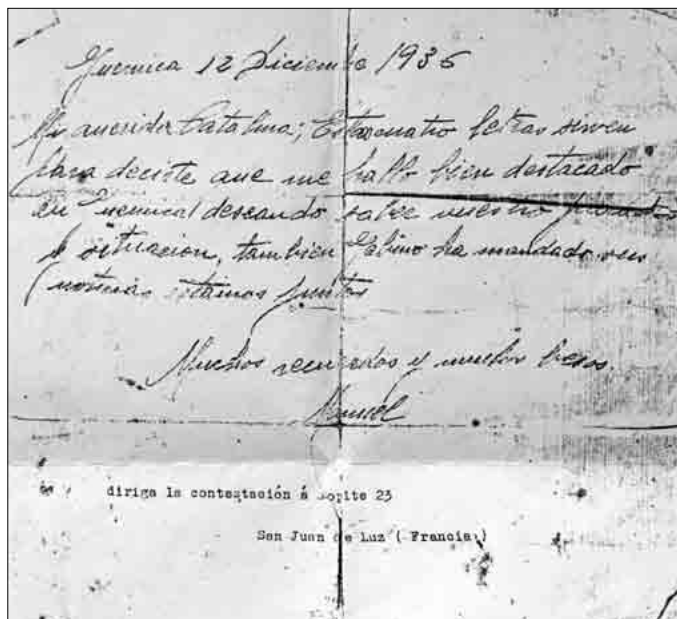 Guernica 12 Diciembre 1936
Mi querida Catalina; Estas cuatro letras sirven
para decirte que me hallo bien destacado
en Guernica! deseando saber vuestro
situacion, tambien Gabino ha mandado sus
noticias estamos juntos
Muchos recuerdos y muchos besos.
Manuel
diriga la contestación á 23
San Juan de Luz ( Francia )